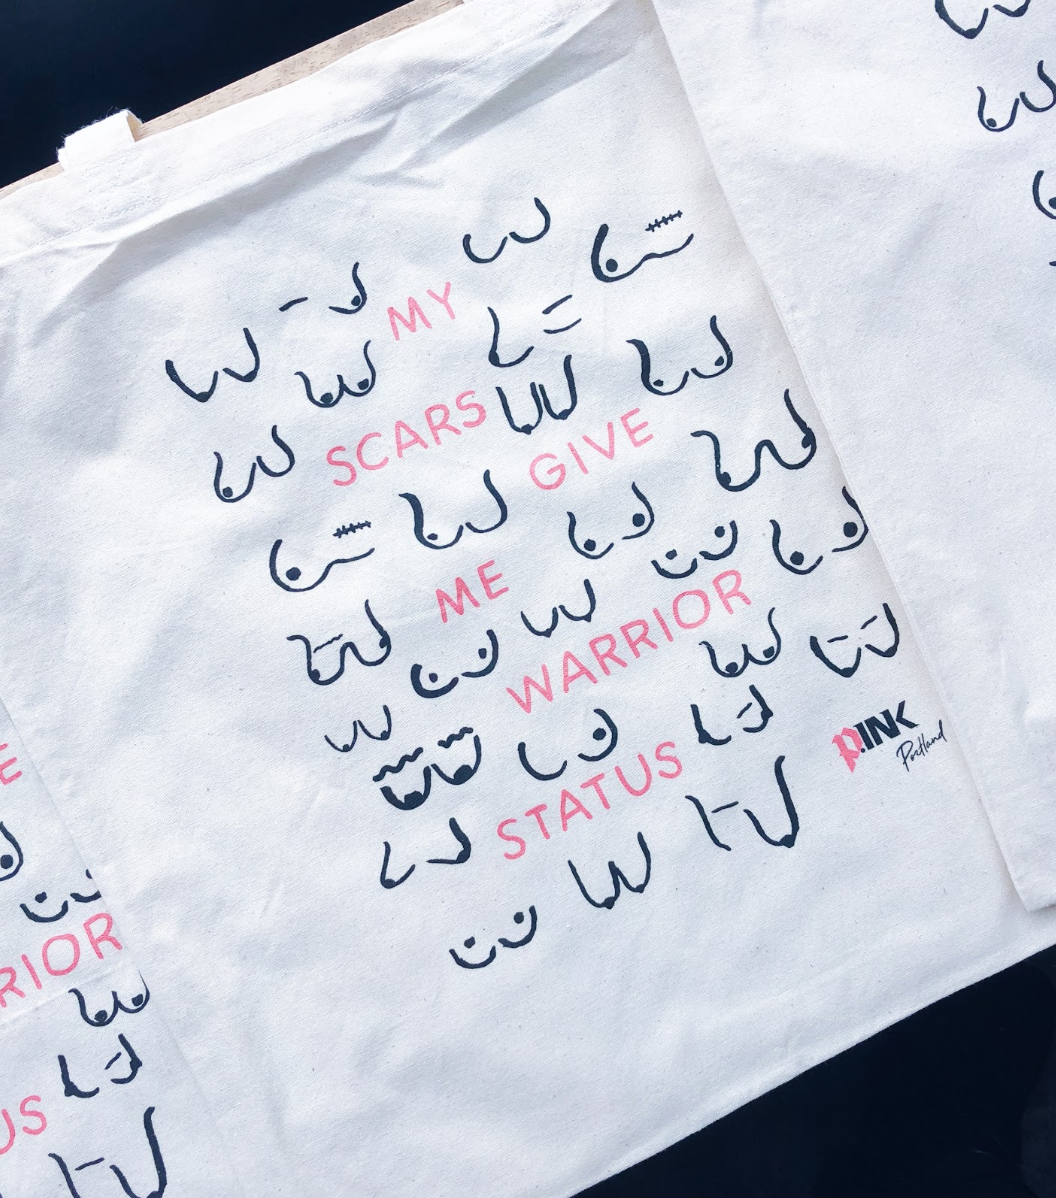 MY
SCARS
GIVE
ME
WARRIOR
STATUS
P.INK
Portland
E
RIOR
US